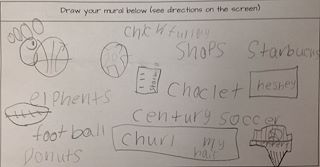 Draw your mural below (see directions on the screen)
chickfullay
Shops Starbucks
Choclet heshey
elphents
century soccer
football
churl my hair
Donuts